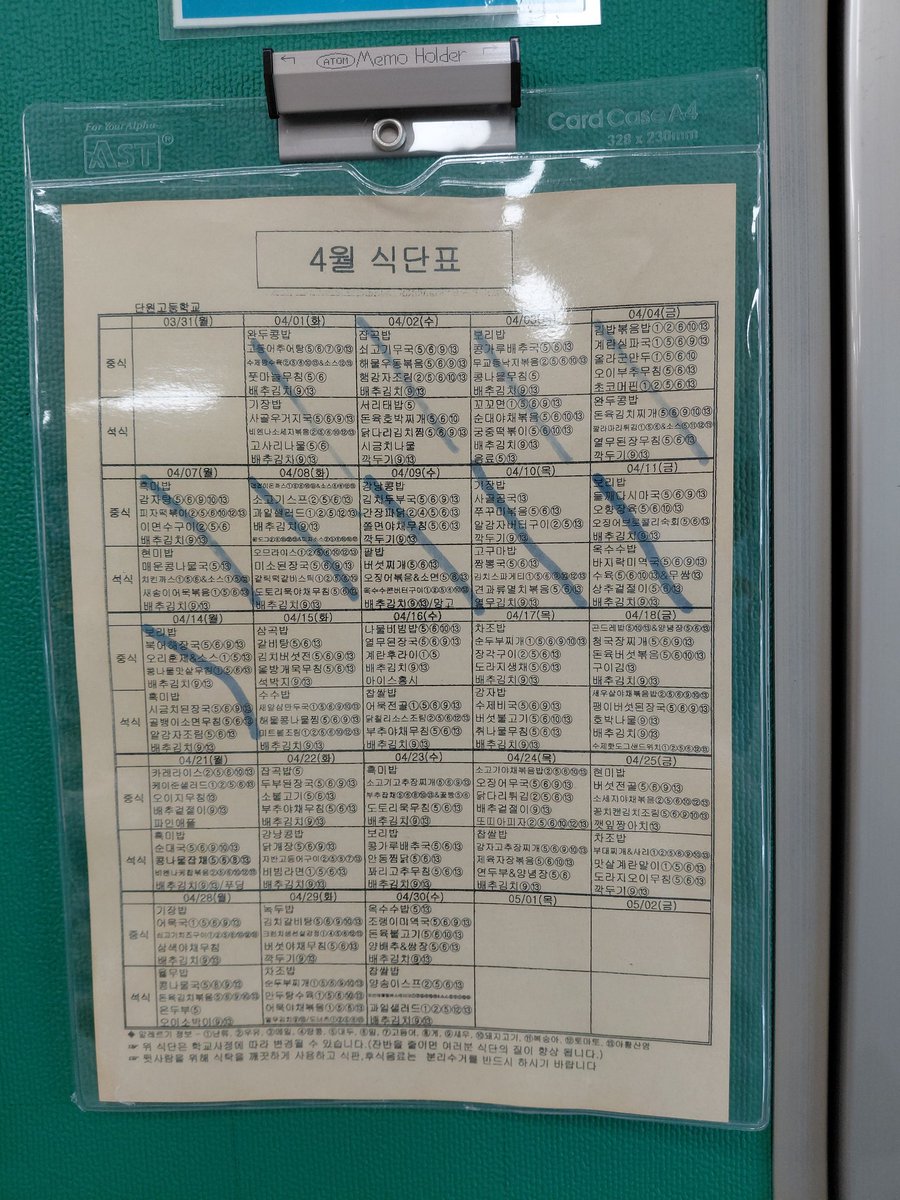 ATOM Memo Holder
For Your Alpha
AST®
Card Case A4
328 x 238mm
4월 식단표
단원고등학교
03/31(월) 04/01(화) 04/02(수) 04/04(금)
중식
완두콩밥
고등어추어탕⑤⑥⑦⑨⑬
풋마늘무침⑤⑥
배추김치⑨⑬
잡곡밥
쇠고기무국⑤⑥⑨⑬
해물우동볶음⑤⑥⑨⑬
행감자조림②⑤⑥⑩⑬
배추김치⑨⑬
보리밥
콩가루배추국⑤⑥⑬
콩나물무침⑤
배추김치⑨⑬
김밥볶음밥①②⑥⑩⑬
계란실파국①⑤⑬
올라군만두①⑤⑥⑩
오이부추무침⑤⑥⑬
초코머핀①②⑤⑥⑬
석식
기장밥
사골우거지국⑤⑥⑨⑬
고사리나물⑤⑥
배추김치⑨⑬
서리태밥⑤
돈육호박찌개⑤⑥⑩
닭다리김치찜⑤⑥⑨⑬
시금치나물
깍두기⑨⑬
꼬꼬면①⑤⑥⑨⑬
순대야채볶음⑤⑥⑩⑬
궁중떡볶이⑤⑥⑩⑬
배추김치⑨⑬
음료⑤⑬
완두콩밥
돈육김치찌개⑤⑥⑨⑩⑬
열무된장무침⑤⑥⑬
깍두기⑨⑬
04/07(월) 04/08(화) 04/09(수) 04/10(목) 04/11(금)
중식
흑미밥
감자탕⑤⑥⑨⑩⑬
피자떡볶이②⑤⑥⑩⑫⑬
이면수구이②⑤⑥
배추김치⑨⑬
소고기스프②⑤⑥⑬
과일샐러드①②⑤⑫⑬
배추김치⑨⑬
강낭콩밥
김치두부국⑤⑥⑨⑬
간장파닭②④⑤⑥⑬
쫄면야채무침⑤⑥⑬
깍두기⑨⑬
기장밥
사골곰국⑬
쭈꾸미볶음⑤⑥⑬
알감자버터구이②⑤⑬
깍두기⑨⑬
보리밥
들깨다시마국⑤⑥⑨⑬
오향장육⑤⑥⑩⑬
오징어브로콜리숙회⑤⑥⑬
배추김치⑨⑬
석식
현미밥
매운콩나물국⑤⑬
치킨까스①⑤⑥&소스①⑤⑬
새송이어묵볶음①⑤⑥⑬
배추김치⑨⑬
오므라이스①②⑤⑥⑩⑫⑬
미소된장국⑤⑥⑨⑬
도토리묵야채무침⑤⑥⑬
배추김치⑨⑬
팥밥
버섯찌개⑤⑥⑬
오징어볶음&소면⑤⑥⑬
옥수수콘버터구이②⑤⑬
배추김치⑨⑬/망고
고구마밥
짬뽕국⑤⑥⑬
견과류멸치볶음⑤⑥⑬
열무김치⑨⑬
옥수수밥
바지락미역국⑤⑥⑬
수육⑤⑥⑩⑬&무쌈⑬
상추겉절이⑤⑥⑬
배추김치⑨⑬
04/14(월) 04/15(화) 04/16(수) 04/17(목) 04/18(금)
중식
보리밥
북어해장국⑤⑥⑨⑬
오리훈제&소스①⑤⑬
배추김치⑨⑬
삼곡밥
갈비탕⑤⑥⑬
김치버섯전⑤⑥⑨⑬
올방개묵무침⑤⑥⑬
석박지⑨⑬
나물비빔밥⑤⑥⑩⑬
열무된장국⑤⑥⑨⑬
계란후라이①⑤
배추김치⑨⑬
아이스홍시
차조밥
순두부찌개①⑤⑥⑨⑩⑬
장각구이②⑤⑥⑬
도라지생채⑤⑥⑬
배추김치⑨⑬
곤드레밥⑤⑩⑬&양념장⑤⑥⑬
청국장찌개⑤⑥⑨⑬
돈육버섯볶음⑤⑥⑩⑬
구이김⑬
배추김치⑨⑬
석식
흑미밥
시금치된장국⑤⑥⑨⑬
골뱅이소면무침⑤⑥⑬
알감자조림⑤⑥⑬
배추김치⑨⑬
수수밥
해물콩나물찜⑤⑥⑨⑬
배추김치⑨⑬
찹쌀밥
어묵전골①⑤⑥⑨⑬
부추야채무침⑤⑥⑬
배추김치⑨⑬
감자밥
수제비국⑤⑥⑨⑬
버섯불고기⑤⑥⑩⑬
취나물무침⑤⑥⑬
배추김치⑨⑬
팽이버섯된장국⑤⑥⑨⑬
호박나물⑨⑬
배추김치⑨⑬
04/21(월) 04/22(화) 04/23(수) 04/24(목) 04/25(금)
중식
카레라이스②⑤⑥⑩⑬
케이준샐러드①②⑤⑥⑬
오이지무침⑬
배추겉절이⑨⑬
파인애플
잡곡밥⑤
두부된장국⑤⑥⑨⑬
소불고기⑤⑥⑬
부추야채무침⑤⑥⑬
배추김치⑨⑬
흑미밥
소고기고추장찌개⑤⑥⑨⑬
도토리묵무침⑤⑥⑬
배추김치⑨⑬
소고기야채볶음밥②⑤⑥⑩⑬
오징어무국⑤⑥⑬
닭다리튀김②⑤⑥⑬
배추겉절이⑨⑬
또띠아피자②⑤⑥⑩⑫⑬
현미밥
버섯전골⑤⑥⑨⑬
소세지야채볶음②⑤⑥⑩⑬
꽁치캔김치조림⑤⑥⑨⑬
깻잎짱아치⑬
석식
흑미밥
순대국⑤⑥⑨⑩⑬
콩나물잡채⑤⑥⑧⑬
배추김치⑨⑬/푸딩
강낭콩밥
닭개장⑤⑥⑨⑬
비빔라면①⑤⑥⑬
배추김치⑨⑬
보리밥
콩가루배추국⑤⑥⑬
안동찜닭⑤⑥⑬
꽈리고추무침⑤⑥⑬
배추김치⑨⑬
찹쌀밥
감자고추장찌개⑤⑥⑨⑬
제육자장볶음⑤⑥⑩⑬
연두부&양념장⑤⑥
배추김치⑨⑬
차조밥
맛살계란말이①⑤⑥⑬
도라지오이무침⑤⑥⑬
깍두기⑨⑬
04/28(월) 04/29(화) 04/30(수) 05/01(목) 05/02(금)
중식
기장밥
어묵국①⑤⑥⑨⑬
삼색야채무침
배추김치⑨⑬
녹두밥
김치갈비탕⑤⑥⑨⑩⑬
버섯야채무침⑤⑥⑬
깍두기⑨⑬
옥수수밥⑤⑬
조랭이미역국⑤⑥⑨⑬
돈육불고기⑤⑥⑩⑬
양배추&쌈장⑤⑥⑬
배추김치⑨⑬
석식
율무밥
콩나물국⑤⑥⑨⑬
돈육김치볶음⑤⑥⑨⑩⑬
온두부⑤
오이소박이⑨⑬
차조밥
순두부찌개①⑤⑥⑨⑩⑬
만두탕수육①⑤⑥⑩⑬
어묵야채볶음①⑤⑥⑬
찹쌀밥
양송이스프②⑤⑥⑬
과일샐러드①②⑤⑫⑬
배추김치⑨⑬
◆ 알레르기 정보 - ①난류, ②우유, ③메밀, ④땅콩, ⑤대두, ⑥밀, ⑦고등어, ⑧게, ⑨새우, ⑩돼지고기, ⑪복숭아, ⑫토마토, ⑬아황산염
☞ 위 식단은 학교사정에 따라 변경될 수 있습니다.(잔반을 줄이면 여러분 식단의 질이 향상 됩니다.)
☞ 뒷사람을 위해 식탁을 깨끗하게 사용하고 식판,후식음료는 분리수거를 반드시 하시기 바랍니다